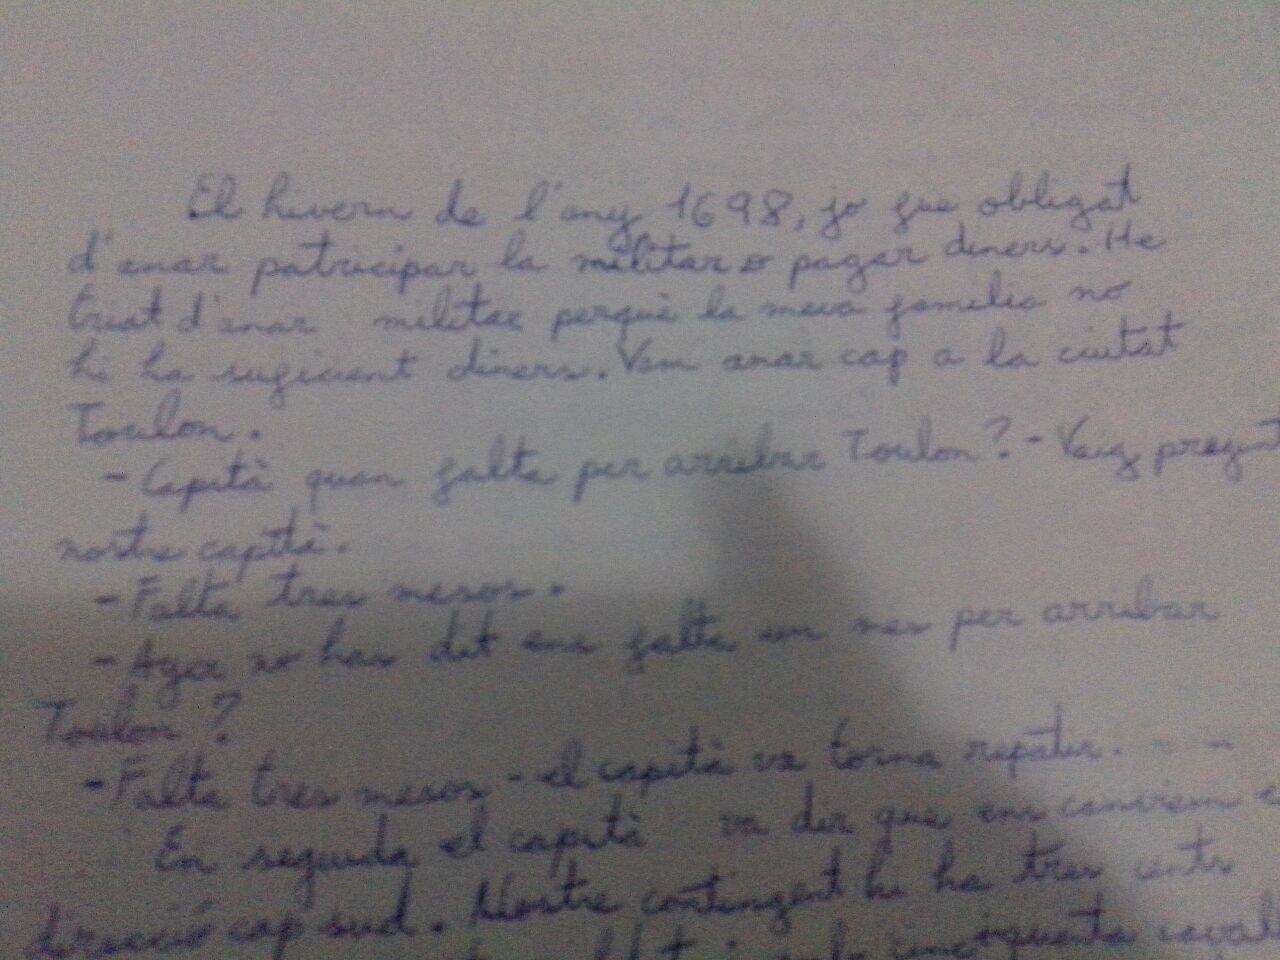 El hivern de l'any 1698, jo fue obligat
d'anar patricipar la militar o pagar diners. He
triat d'anar militar perquè la meva familia no
hi ha suficient diners. Vam anar cap a la ciutat
Toulon.
- Capità quan falta per arribar Toulon? - Vaig
nostre capità.
- Falta tres mesos.
- Ager no has dit ens falta un mes per arribar
Toulon?
- Falta tres mesos - el capità va torna repatir.
En seguida el capità va dir que ens canviem
direcció cap sud. Nostre contingent hi ha tres cents